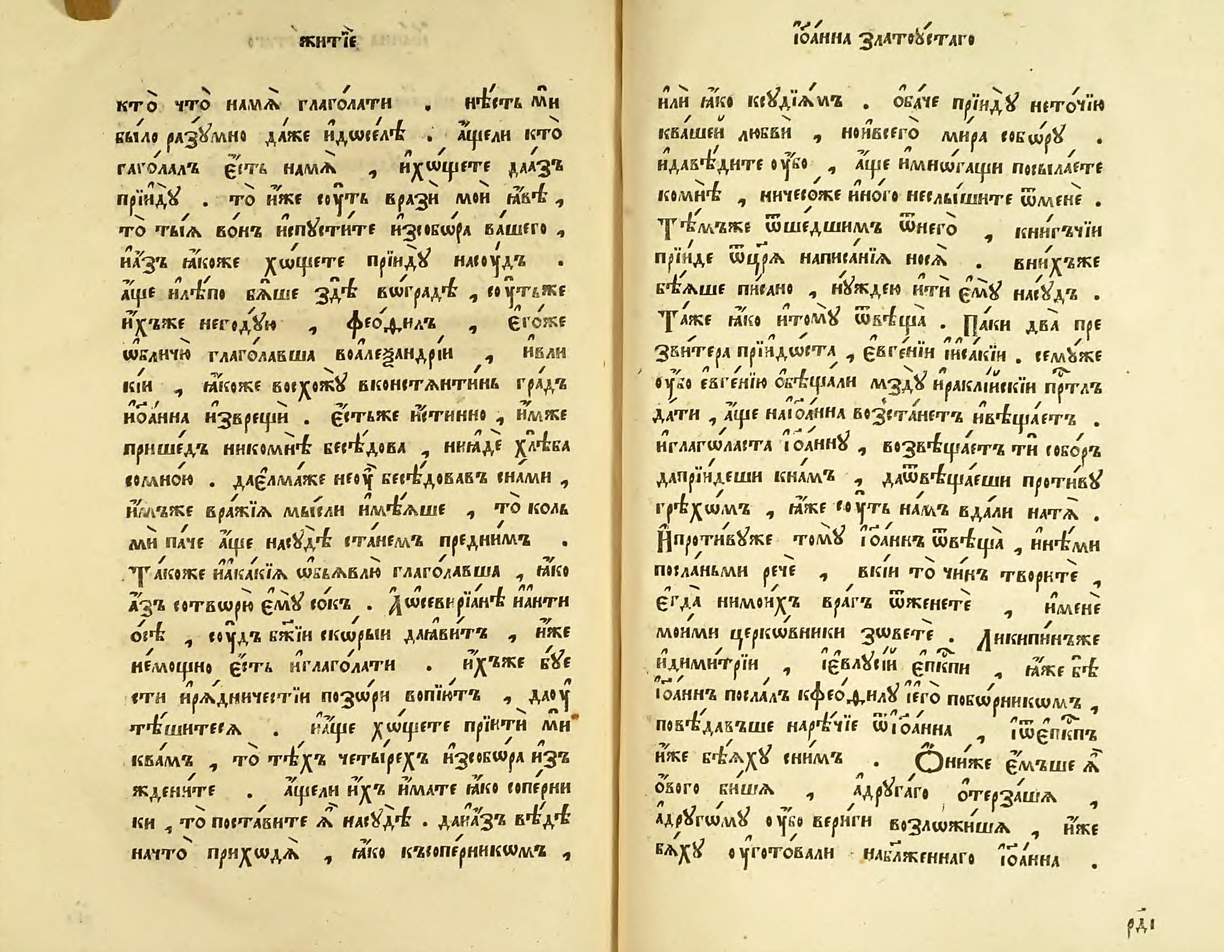 житїѐ
кто̀ что̀ намѧ̀ глаго́лати . нѣ́сть мѝ
было разꙋ́мно да́же и҆дѡселѣ̀ . а҆́щели кто̀
гаго́лалъ є҆́сть намѧ̀ , и҆хѡ́щете даа́зъ
прїидꙋ̀ . то̀ и҆́же сꙋ́ть вразѝ моѝ ꙗ҆́вѣ ,
то̀ ты́ѧ во́нъ и҆спꙋсти́те и҆зсобѡ́ра ва́шего ,
и҆а҆́зъ ꙗ҆́коже хѡ́щете прїидꙋ̀ насꙋ́дъ .
а҆́ще и҆лѣ́по бѧ́ше здѣ̀ вѡгра́дѣ , сꙋ́тьже
и҆́хъже негодꙋ́ю , феоѳи́лъ , є҆го́же
ѡ҆бличю̀ глаго́лавша воалеѯандрі́и , и҆вли
кі́и , ꙗ҆́коже восхожꙋ̀ вконстянти́нь гра́дъ
и҆і҆ѡа́нна и҆зврещѝ . є҆́стьже и҆́стинно , и҆́мже
прише́дъ никомнѣ̀ бесѣ́дова , ниꙗ҆дѐ хлѣ́ба
сомно́ю . дає҆лма́же неоу҆̀ бесѣ́довавъ сна́ми ,
и҆́мъже вра́жїѧ мы́сли и҆мѣ́ѧше , то̀ коль
мѝ па́че а҆́ще насꙋ́дѣ ста́немъ предни́мъ .
Та́коже и҆а҆ка́кїѧ ѡ҆бьѧвлю̀ глаго́лавша , ꙗ҆́ко
а҆́зъ сотворю̀ є҆мꙋ̀ со́къ . Дѡсевирїа́нѣ и҆а҆нти
о́сѣ , сꙋ́дъ бж҃їи скѡ́рыи даꙗ҆́витъ , и҆́же
не́мощно є҆́сть и҆глаго́лати . и҆́хъже бꙋ́е
сти и҆рѧ́дничестїи позѡ́ри вопїю́тъ , даоу҆
тѣ́шитесѧ . и҆а҆́ще хѡ́щете прїитѝ мѝ
ква́мъ , то̀ тѣ́хъ четы́рехъ и҆зсобѡ́ра и҆зъ
ждени́те . а҆́щели и҆́хъ и҆́мате ꙗ҆́ко сопе́рни
ки , то̀ поста́вите ѧ҆̀ насꙋ́дѣ . даи҆а҆́зъ вѣ́дѣ
начто̀ прихѡдѧ̀ , ꙗ҆́ко късопе́рникѡмъ ,
і҆ѡа́нна златоꙋ́стаго
и҆лѝ ꙗ҆́ко ксꙋдїѧ́мъ . ѻ҆ба́че прїидꙋ̀ нето́чїю
ква́шей любвѝ , ноивсего̀ ми́ра собѡ́рꙋ .
и҆давѣ́дите оу҆́бо , а҆́ще и҆мно́гащи посыла́ете
комнѣ̀ , ничесо́же и҆но́го неслы́шите ѿменѐ .
Тѣ́мъже ѿше́дшимъ ѿнего̀ , книгъчі́и
прїи́де ѿцр҃ѧ̀ написа́нїѧ носѧ̀ . вни́хъже
бѣ́ѧше пи́сано , нꙋ́ждею и҆тѝ є҆мꙋ̀ насꙋ́дъ .
Та́же ꙗ҆́ко и҆томꙋ̀ ѿвѣща̀ . Па́ки два̀ пре
зви́тера прїидѡ́ста , є҆вге́нїи и҆і҆са́кїи . семꙋ́же
оу҆́бо є҆вге́нїю ѻ҆бѣща́ли мздꙋ̀ и҆ракли́йскїи прⷭ҇тлъ
да́ти , а҆́ще наі҆ѡа́нна возста́нетъ и҆вѣща́етъ .
и҆глаго́ласта і҆ѡа́ннꙋ , возвѣща́етъ тѝ собо́ръ
дапрїи́деши кна́мъ , даѿвѣща́еши проти́вꙋ
грѣхѡ́мъ , ꙗ҆̀же сꙋ́ть на́мъ вда́ли натѧ̀ .
И҆проти́вꙋже томꙋ̀ і҆ѡа́ннъ ѿвѣща̀ , и҆нѣ́ми
посла́ными речѐ , вкі́и то̀ чи́нъ творитѐ ,
є҆гда̀ нимои́хъ вра́гъ ѿженетѐ , и҆менѐ
мои́ми церкѡ́вники зѡветѐ . Ликипи́нъже
и҆дими́трїи , і҆е҆влꙋ́сїй є҆пⷭ҇кпи , ꙗ҆̀же бѣ̀
і҆ѡа́ннъ посла́лъ кфеоѳи́лꙋ і҆є҆го̀ побѡ́рникѡмъ ,
повѣ́давъше нарѣ́чїе ѿі҆ѡа́нна , і҆ѿє҆пⷭ҇кпъ
и҆́же бѣ́ѧхꙋ сни́мъ . Ѻ҆ни́же є҆́мъше ѧ҆̀
ѻ҆́вого би́шѧ , а҆дрꙋга́го ѻ҆терза́шѧ ,
а҆дрꙋго́мꙋ оу҆́бо вери́ги возложи́шѧ , и҆́же
бѧ́хꙋ оу҆гото́вали наблаже́ннаго і҆ѡа́нна .
рд҃і